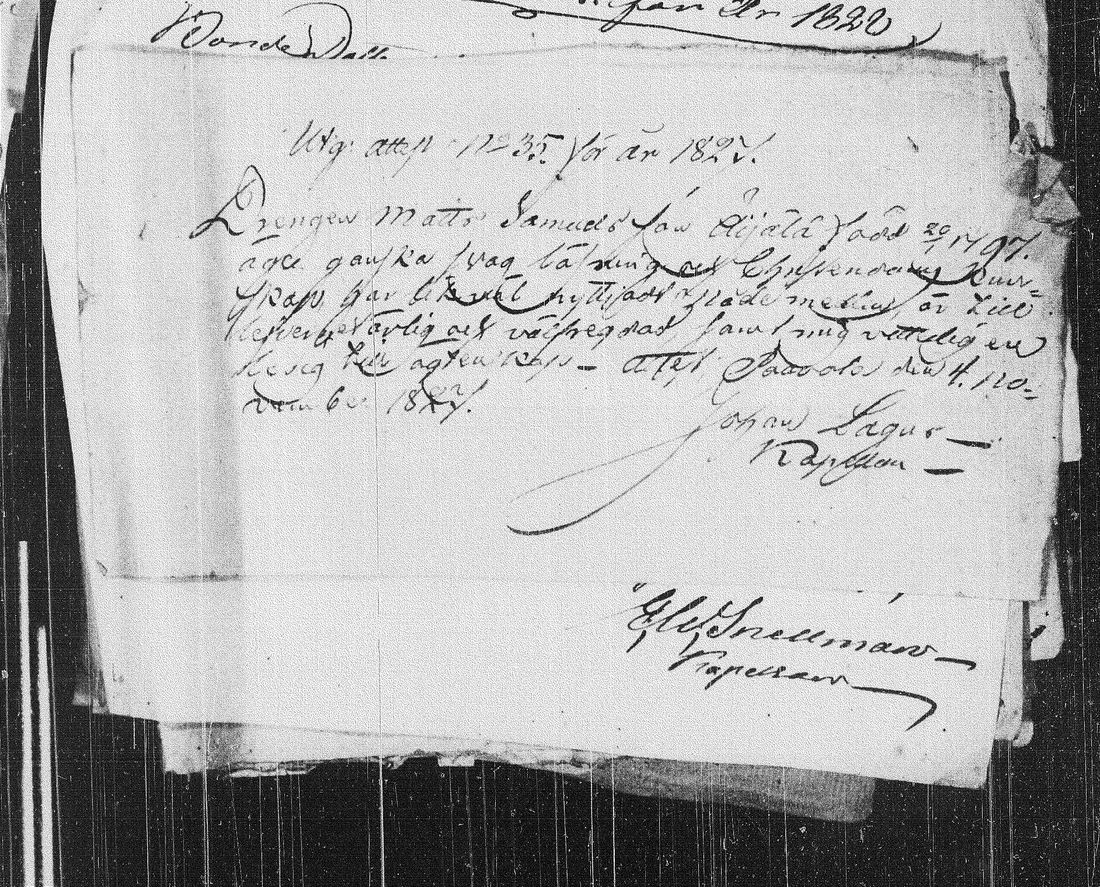 för År 1828
Bonde
Utg: attest No 35 för år 1827.
Drengen Matts Samuels son Äijälä född 20/1 1797.
äger ganska svag läsning och Christendoms kun=
skap, har likväl nyttjadt nådemedlen, är till
lefvernet ärlig och välfregdad, samt mig vetterligen
ledig till ägtenskap_ attest Paavola den 4. no=
vember 1827.
Johan Lagus
Kapellan
El: Snellman
Kapellan